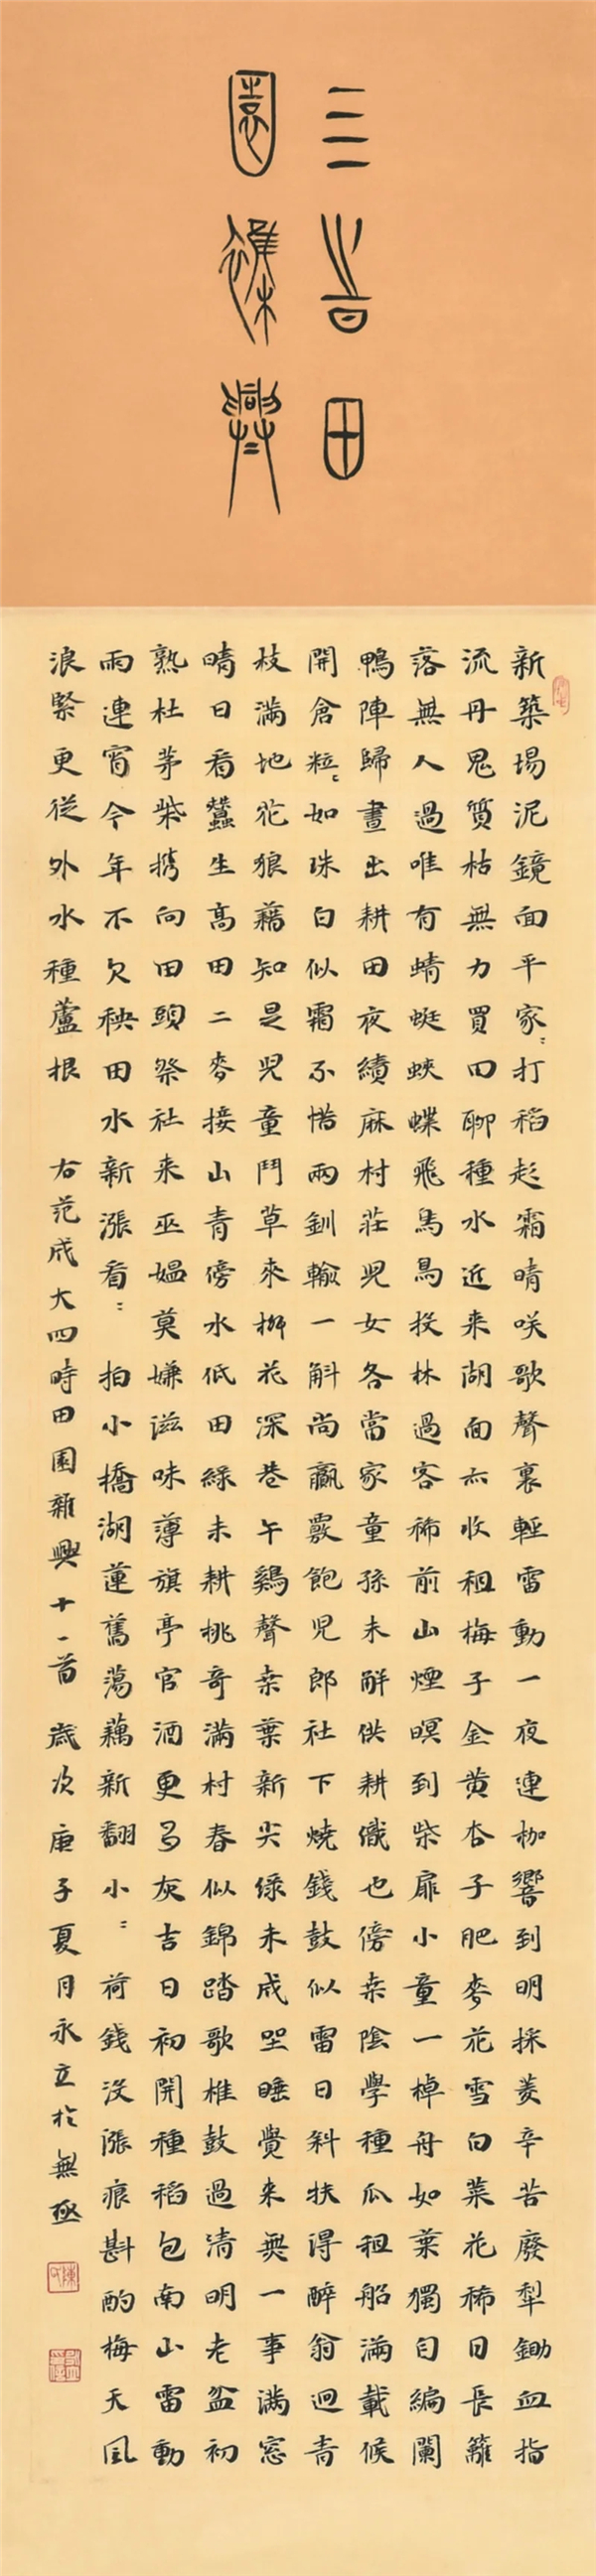 亖旹田
園雜興
新築場泥鏡面平家〻打稻趁霜晴咲歌聲裏輕雷動一夜連枷響到明採菱辛苦廢犁鋤血指
流丹鬼質枯無力買田聊種水近来湖面亦收租梅子金黃杏子肥麥花雪白菜花稀日長籬
落無人過唯有蜻蜓蛺蝶飛烏鳥投林過客稀前山煙暝到柴扉小童一棹舟如葉獨自編闌
鴨陣歸晝出耕田夜績麻村莊兒女各當家童孫未解供耕織也傍桒陰學種瓜租船滿載候
開倉粒〻如珠白似霜不惜兩釧輸一斛尚贏覈飽児郎社下燒錢鼓似雷日斜扶得醉翁迴青
枝滿地花狼藉知是兒童鬥草來桺花深巷午鷄聲桒葉新尖綠未成坐睡覺來無一事滿窓
晴日看蠶生高田二麥接山青傍水低田綠未耕桃杏滿村春似錦踏歌椎鼓過清明老盆初
熟杜茅柴携向田頭祭社来巫媪莫嫌滋味薄旗亭官酒更多灰吉日初開種稻包南山雷動
雨連宵今年不欠秧田水新漲看〻拍小橋湖蓮舊蕩藕新翻小〻荷錢沒漲痕斟酌梅天風
浪緊更從外水種蘆根 右范成大四時田園雜興十一首 歲次庚子夏月永立於無極